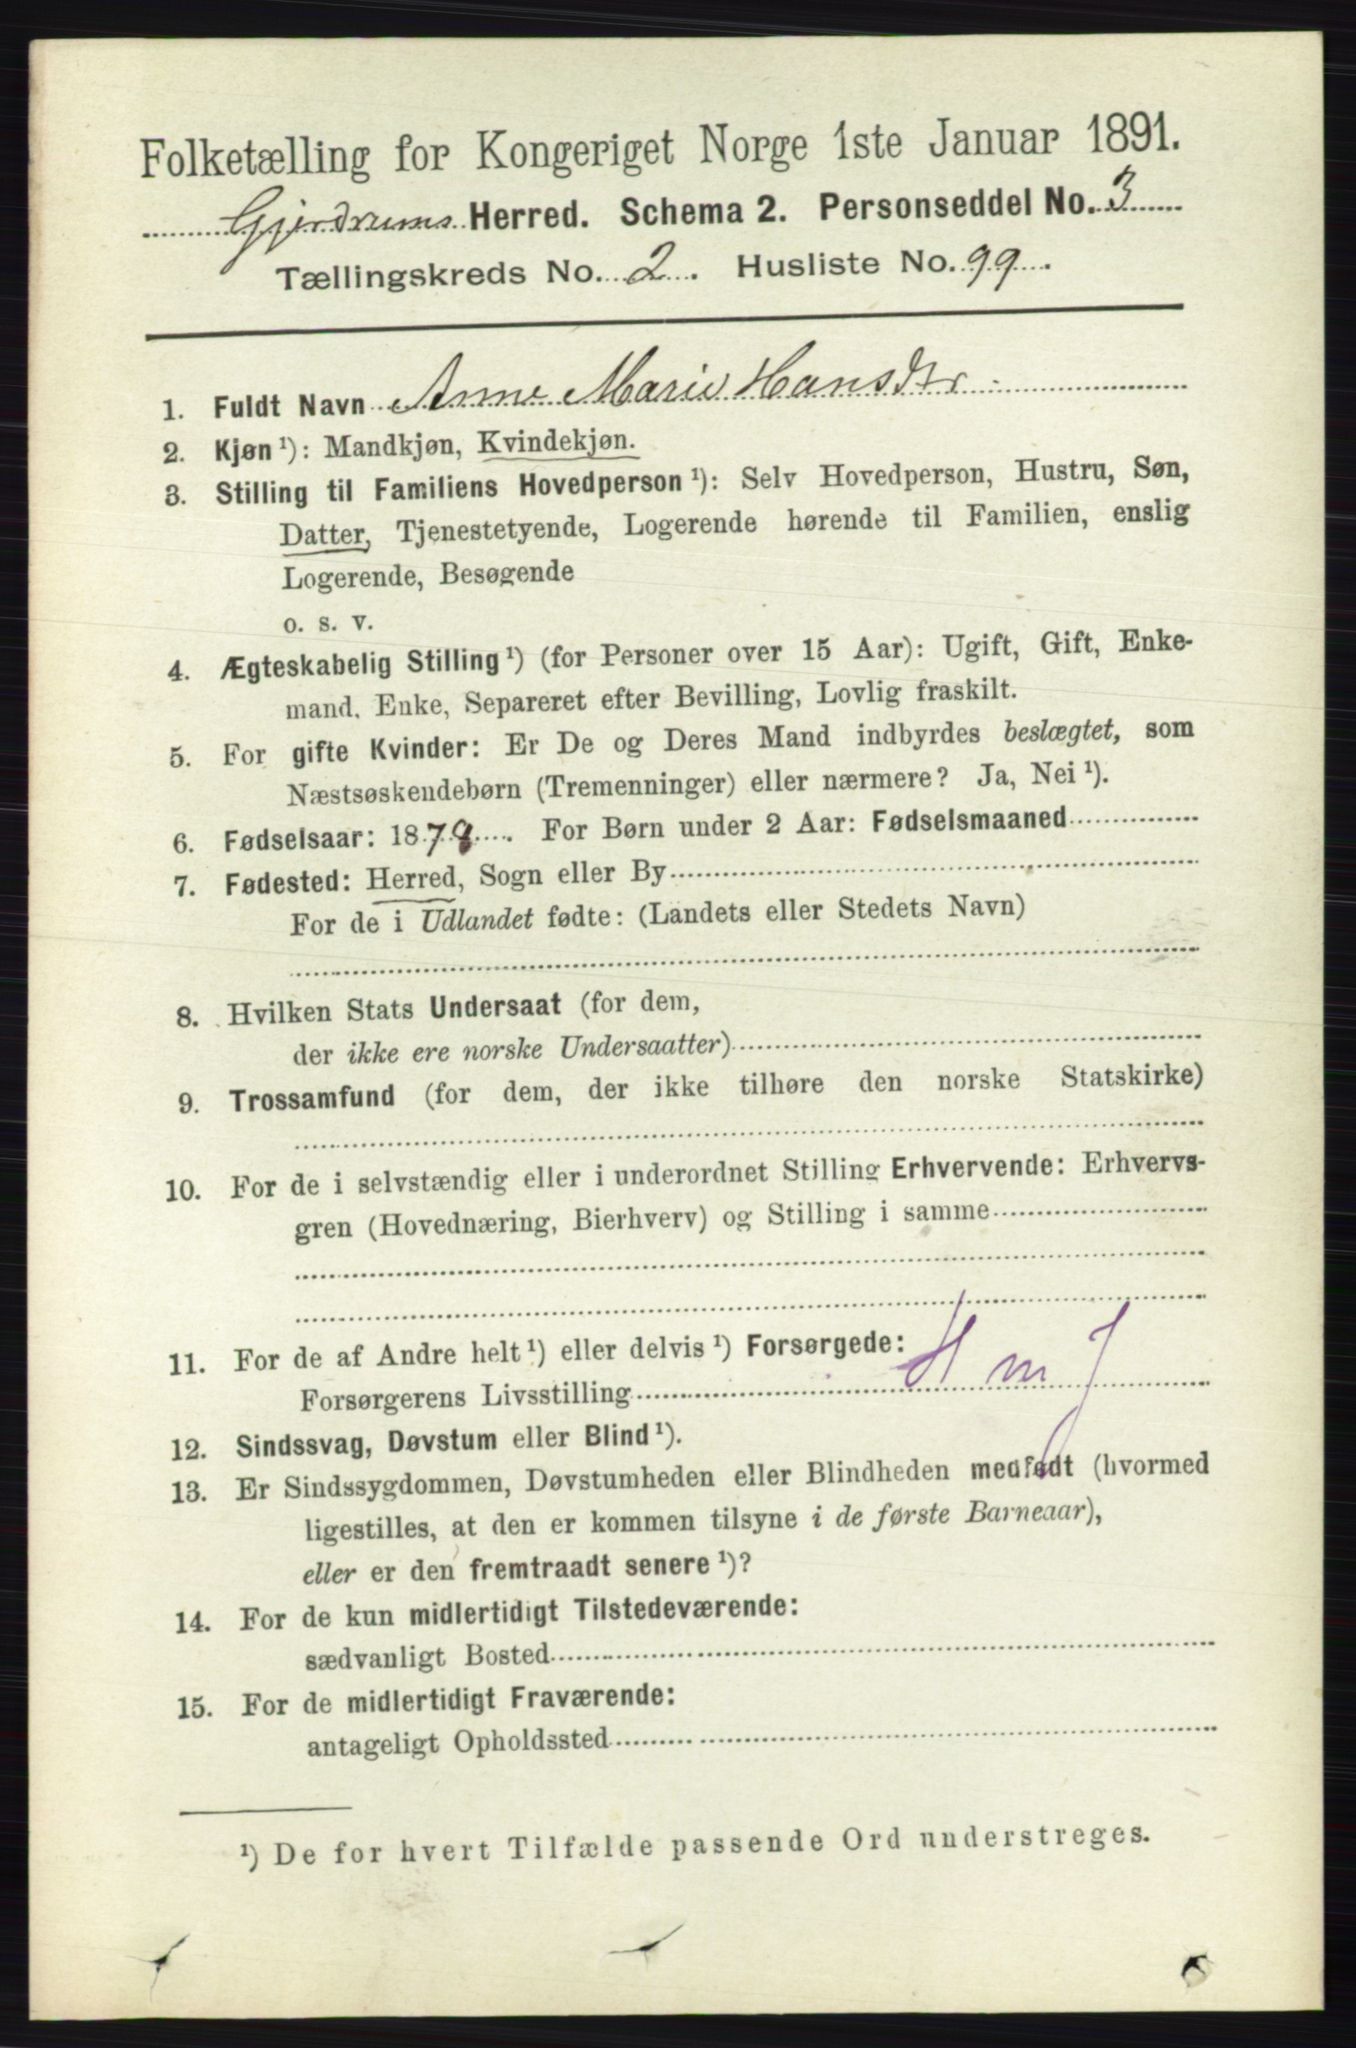 Folketælling for Kongeriget Norge 1ste Januar 1891.
Gjerdrums Herred. Schema 2. Personseddel No. 3
Tællingskreds No. 2. Husliste No. 99.
1. Fuldt Navn Anne Marie Hansdtr
2. Kjøn ¹): Mandkjøn, Kvindekjøn.
3. Stilling til Familiens Hovedperson ¹): Selv Hovedperson, Hustru, Søn,
Datter, Tjenestetyende, Logerende hørende til Familien, enslig
Logerende, Besøgende
o. s. v.
4. Ægteskabelig Stilling ¹) (for Personer over 15 Aar): Ugift, Gift, Enke-
mand, Enke, Separeret efter Bevilling, Lovlig fraskilt.
5. For gifte Kvinder: Er De og Deres Mand indbyrdes beslægtet, som
Næstsøskendebørn (Tremenninger) eller nærmere? Ja, Nei ¹).
6. Fødselsaar: 1879. For Børn under 2 Aar: Fødselsmaaned
7. Fødested: Herred, Sogn eller By
For de i Udlandet fødte: (Landets eller Stedets Navn)
8. Hvilken Stats Undersaat (for dem,
der ikke ere norske Undersaatter)
9. Trossamfund (for dem, der ikke tilhøre den norske Statskirke)
10. For de i selvstændig eller i underordnet Stilling Erhvervende: Erhvervs-
gren (Hovednæring, Bierhverv) og Stilling i samme
11. For de af Andre helt ¹) eller delvis ¹) Forsørgede:
Forsørgerens Livsstilling H m J
12. Sindssvag, Døvstum eller Blind ¹).
13. Er Sindssygdommen, Døvstumheden eller Blindheden medfødt (hvormed
ligestilles, at den er kommen tilsyne i de første Barneaar),
eller er den fremtraadt senere ¹)?
14. For de kun midlertidigt Tilstedeværende:
sædvanligt Bosted
15. For de midlertidigt Fraværende:
antageligt Opholdssted
¹) De for hvert Tilfælde passende Ord understreges.